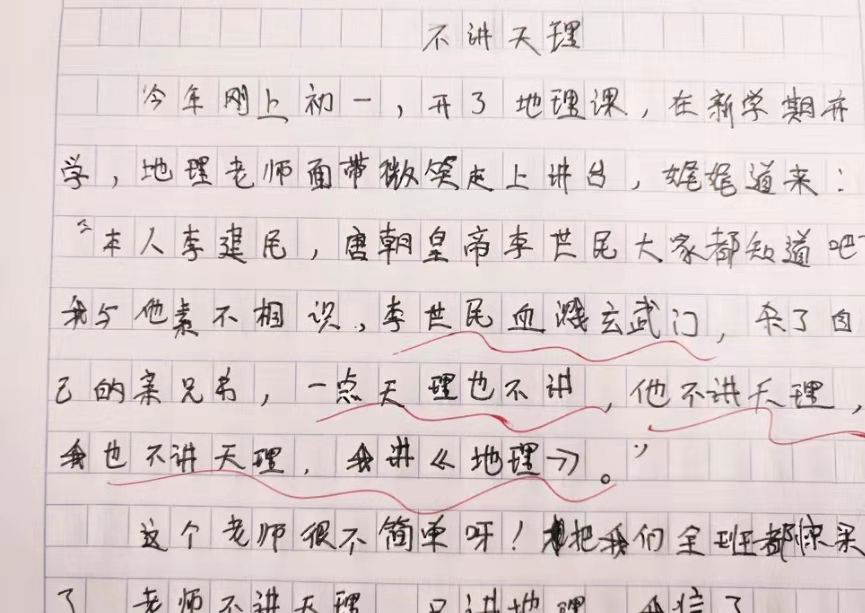 不讲天理
今年刚上初一，开了地理课，在新学期开
学，地理老师面带微笑走上讲台，娓娓道来：
“本人李建民，唐朝皇帝李世民大家都知道吧？
我与他素不相识，李世民血溅玄武门，杀了自
己的亲兄弟，一点天理也不讲，他不讲天理，
我也不讲天理，我讲《地理》。”
这个老师很不简单呀！把我们全班都惊呆
了 老师不讲天理 只讲地理 我信了